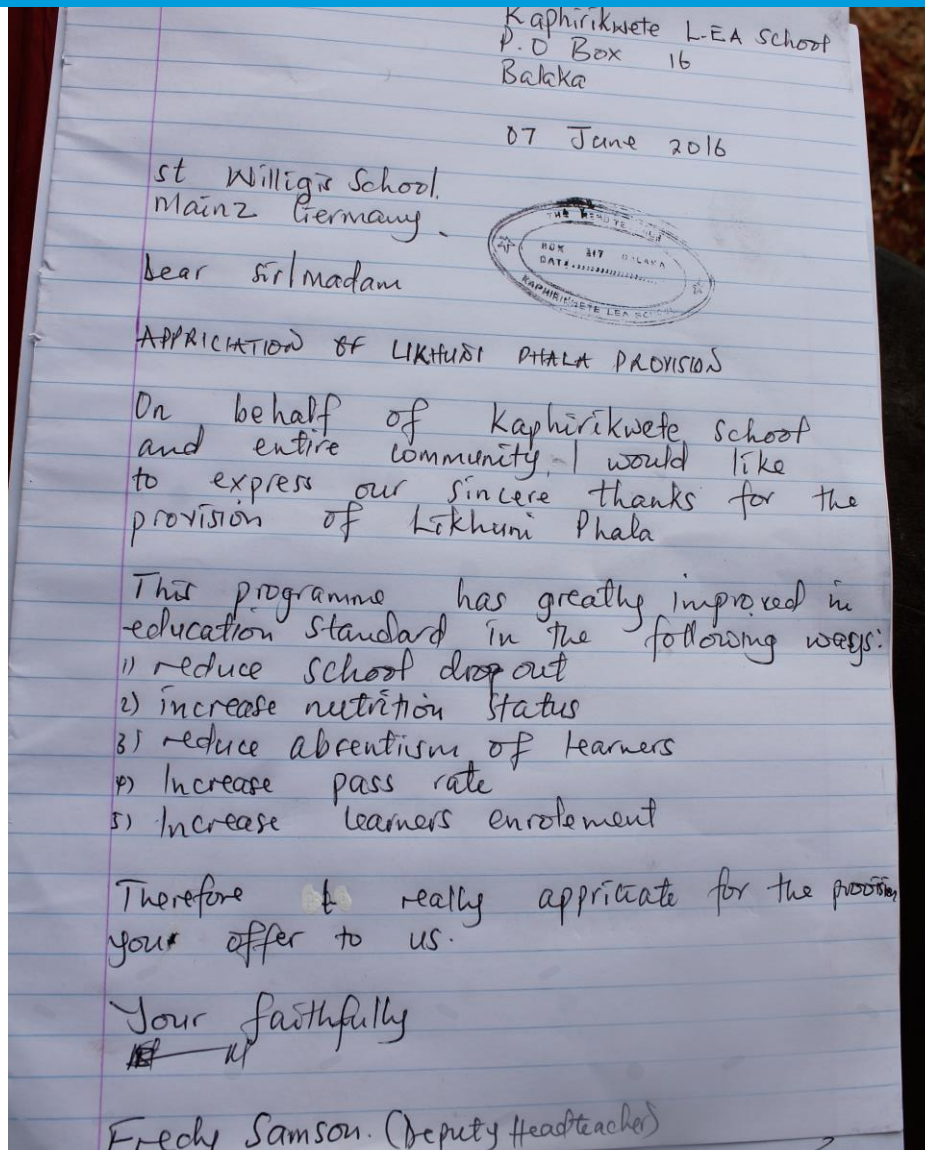 Kaphirikwete L.EA School
P.O Box 16
Balaka
07 June 2016
st Willigis School.
Mainz Germany.
THE HEAD TEACHER
BOX 317 BALAKA
DATE..............
KAPHIRIKWETE LEA SCHOOL
Dear sir/madam
APPRICIATION OF LIKHUNI PHALA PROVISION
On behalf of Kaphirikwete school
and entire community, I would like
to express our sincere thanks for the
provision of Likhuni Phala
This programme has greatly improved in
education standard in the following ways:
1) reduce school drop out
2) increase nutrition status
3) reduce absentiism of learners
4) Increase pass rate
5) Increase learners enrolement
Therefore I really appriciate for the provision
your offer to us.
Your faithfully
Fredy Samson. (Deputy Headteacher)